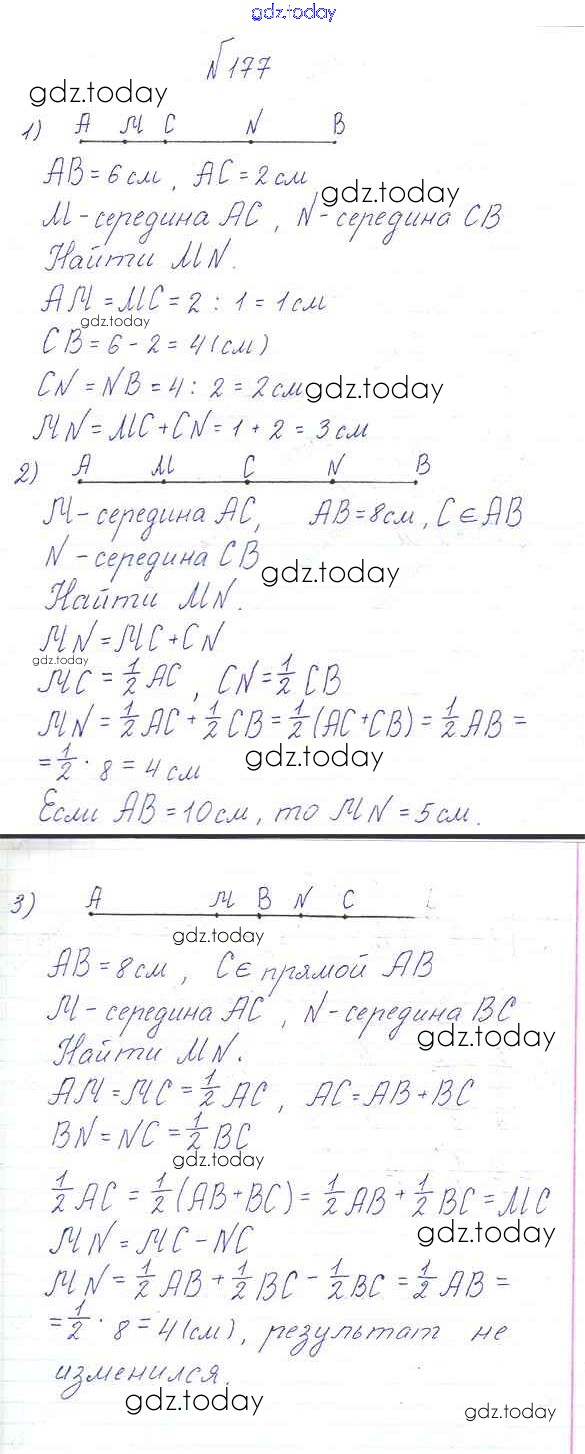 gdz.today
№177
gdz.today
1) A M C N B
AB = 6 см, AC = 2 см
gdz.today
M - середина AC, N - середина CB
Найти MN.
AM = MC = 2 : 1 = 1 см
gdz.today
CB = 6 - 2 = 4 (см)
CN = NB = 4 : 2 = 2 см
gdz.today
MN = MC + CN = 1 + 2 = 3 см
2) A M C N B
M - середина AC, AB = 8 см, C ∈ AB
N - середина CB
gdz.today
Найти MN.
MN = MC + CN
gdz.today
MC = 1/2 AC, CN = 1/2 CB
MN = 1/2 AC + 1/2 CB = 1/2 (AC + CB) = 1/2 AB =
= 1/2 · 8 = 4 см
gdz.today
Если AB = 10 см, то MN = 5 см.
3) A M B N C
gdz.today
AB = 8 см, C ∈ прямой AB
M - середина AC, N - середина BC
gdz.today
Найти MN.
AM = MC = 1/2 AC, AC = AB + BC
BN = NC = 1/2 BC
gdz.today
1/2 AC = 1/2 (AB + BC) = 1/2 AB + 1/2 BC = MC
gdz.today
MN = MC - NC
MN = 1/2 AB + 1/2 BC - 1/2 BC = 1/2 AB =
= 1/2 · 8 = 4 (см), результат не
изменился.
gdz.today
gdz.today